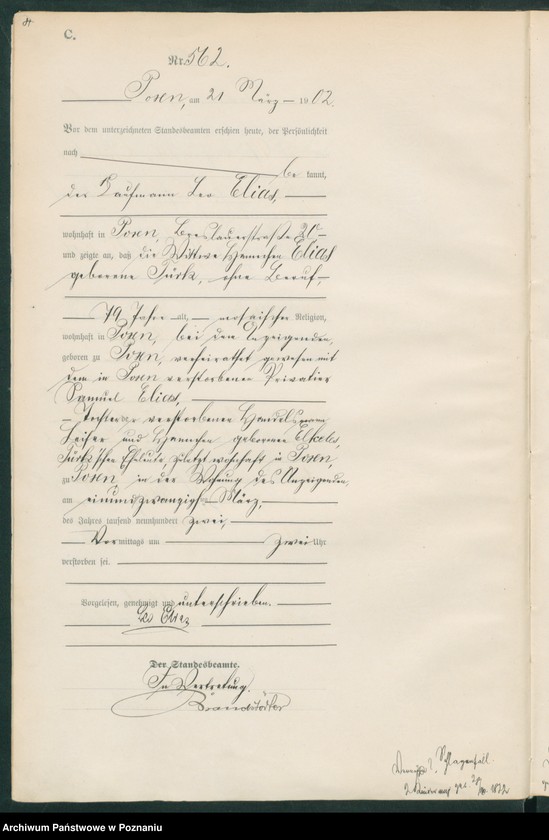 C.
Nr. 562.
Posen, am 21 März 1902.
Vor dem unterzeichneten Standesbeamten erschien heute, der Persönlichkeit
nach
be kannt,
der Kaufmann Leo Elias,
wohnhaft in Posen, Breslauerstraße 20
und zeigte an, daß die Wittwe Hannchen Elias
geborene Türk, ohne Beruf,
79 Jahre alt, mosaischer Religion,
wohnhaft in Posen, bei dem Anzeigenden,
geboren zu Posen, verheirathet gewesen mit
dem in Posen verstorbenen Privatier
Samuel Elias,
Tochter der verstorbenen Handelsmann
Leiser und Hannchen geborenen Elkeles,
Türk'schen Eheleute, zuletzt wohnhaft in Posen,
zu Posen, in der Wohnung des Anzeigenden,
am einundzwanzigsten März,
des Jahres tausend neunhundert zwei,
Vormittags um zwei Uhr
verstorben sei.
Vorgelesen, genehmigt und unterschrieben.
Leo Elias
Der Standesbeamte.
In Vertretung.
Brandstädter
Schlaganfall
1822
Archiwum Państwowe w Poznaniu